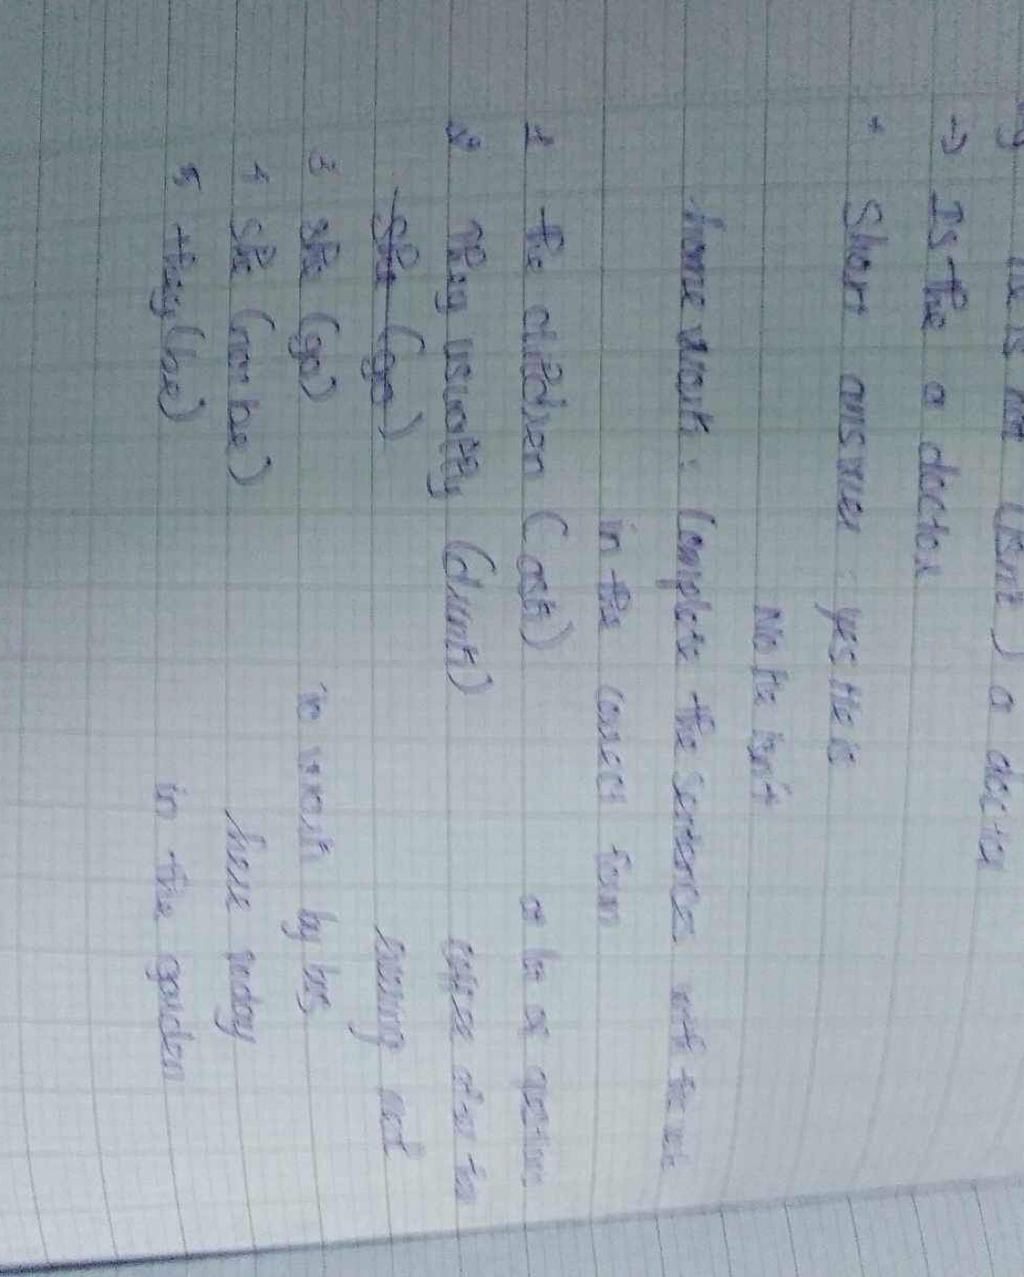 he is not (isn't) a doctor
→ Is the a doctor
* Short answer : yes He is
No He isn't
home work : Complete the sentences with the
in the correct form
1 the children (ask) a lo of questions
2 They usually (drink) coffee
she (go)
3 she (go) to work by bus
4 she (not be) here today
5 they (be) in the garden